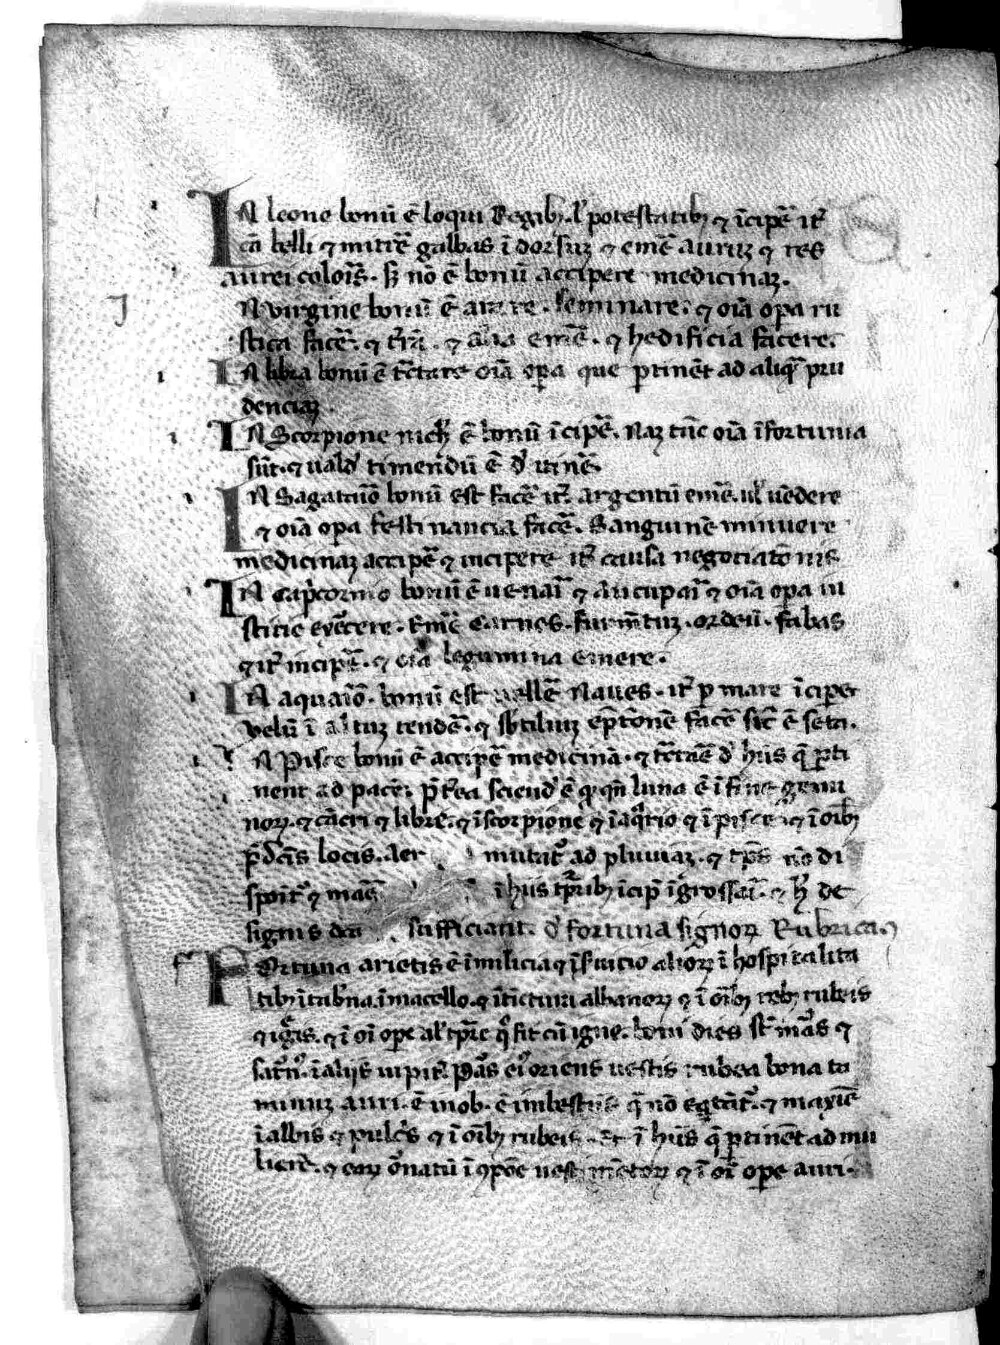 IN leone bonū ē loqui Regibꝫ. l' potestatibꝫ ⁊ īcipē it̄
cā belli ⁊ mitte᷑ galbas ī dorsuꝫ ⁊ emē auruꝫ ⁊ res
aurei colois̄. sꝫ nō ē bonū accipere medicinaꝫ.
N virgine bonū ē arare. seminare. ⁊ oīa opa ru
stica facē. ⁊ t̄rā. ⁊ alia emē. ⁊ hedificia facere.
IN libra bonū ē t̄ctare oīa opa que ꝑtinēt ad aliqā pru
denciaꝫ.
IN Scorpione nich' ē bonū īcipē. Naꝫ tūc oīa īfortunia
sūt. ⁊ uald' timendū ē d' itinē.
IN Sagitt̄io bonū est facē it̄ argentū emē. ul' uēdere
⁊ oīa opa festinancia facē. Sanguinē minuere
medicinaꝫ accipē ⁊ incipere it̄ causa negociatōnis
IN Cap̄corno bonū ē uenāī ⁊ Aucupāī ⁊ oīa opa iu
sticie ex̄cere. Emē Carnes. furm̄tuꝫ. ordeū. fabas
⁊ it̄ incipē. ⁊ oīa legumina emere.
IN aquaīo. bonū est uellē Naues. it̄ p mare īciper
velū ī altuꝫ tendē. ⁊ sbtiluꝫ ep̄tōnē facē sic̄ ē seta.
N Pisce bonū ē accipē medicinā. ⁊ t̄ctāē d' hiis q̄ ꝑti
nent ad pacē. p̄t̄ea sciend' ē ꝙ qn̄ luna ē ī fine gemi
noꝝ. ⁊ cācri ⁊ libre. ⁊ ī scorpione ⁊ ī aq̄rio ⁊ ī pisce ⁊ ī oībꝫ
p̄dc̄is locis. Aer mutat᷑ ad pluuiaꝫ. ⁊ tp̄s nō di
ī hiis tp̄ribꝫ īcip̄ īgrossāī. ⁊ h̄ de
signis dc̄a sufficiant. d' fortuna signoꝝ Rubrica.
Fortuna arietis ē ī milicia ⁊ ī s̄uicio alioꝝ ī hospitalita
tibꝫ ī tab̄na. ī macello. ⁊ ī tīctura albanoꝝ ⁊ ī oībꝫ rebꝫ rubeis
⁊ iḡis. ⁊ ī oī ope al' tp̄re q̄ fit cū igne. boni dies st̄ mās ⁊
sat̄n'. ī aliis iupit̄. ꝑas ei' oriens uestis rubea bona ta
minuꝫ auri. ē mob. ē ī bestiis q̄ nō eq̄tāt᷑. ⁊ maxīē
ī albis ⁊ pulc̄s ⁊ ī oībꝫ rubeis. Et ī hiis q̄ ꝑtinēt ad mu
lierē. ⁊ eaꝝ ōnatū ī ꝯpōe uestimētoꝝ ⁊ ī oī ope auri.